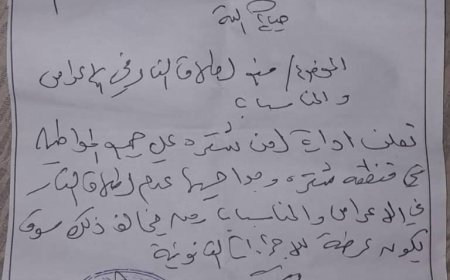 حياة الله
الموضوع/ منع اطلاق النار في الاعراس
والمناسبات
تعلن ادارة امن شتره على جميع المواطنين
في منطقه شتره وضواحيها عدم اطلاق النار
في الاعراس والمناسبات ومن يخالف ذلك سوف
يكون عرضة للاجراءات القانونية